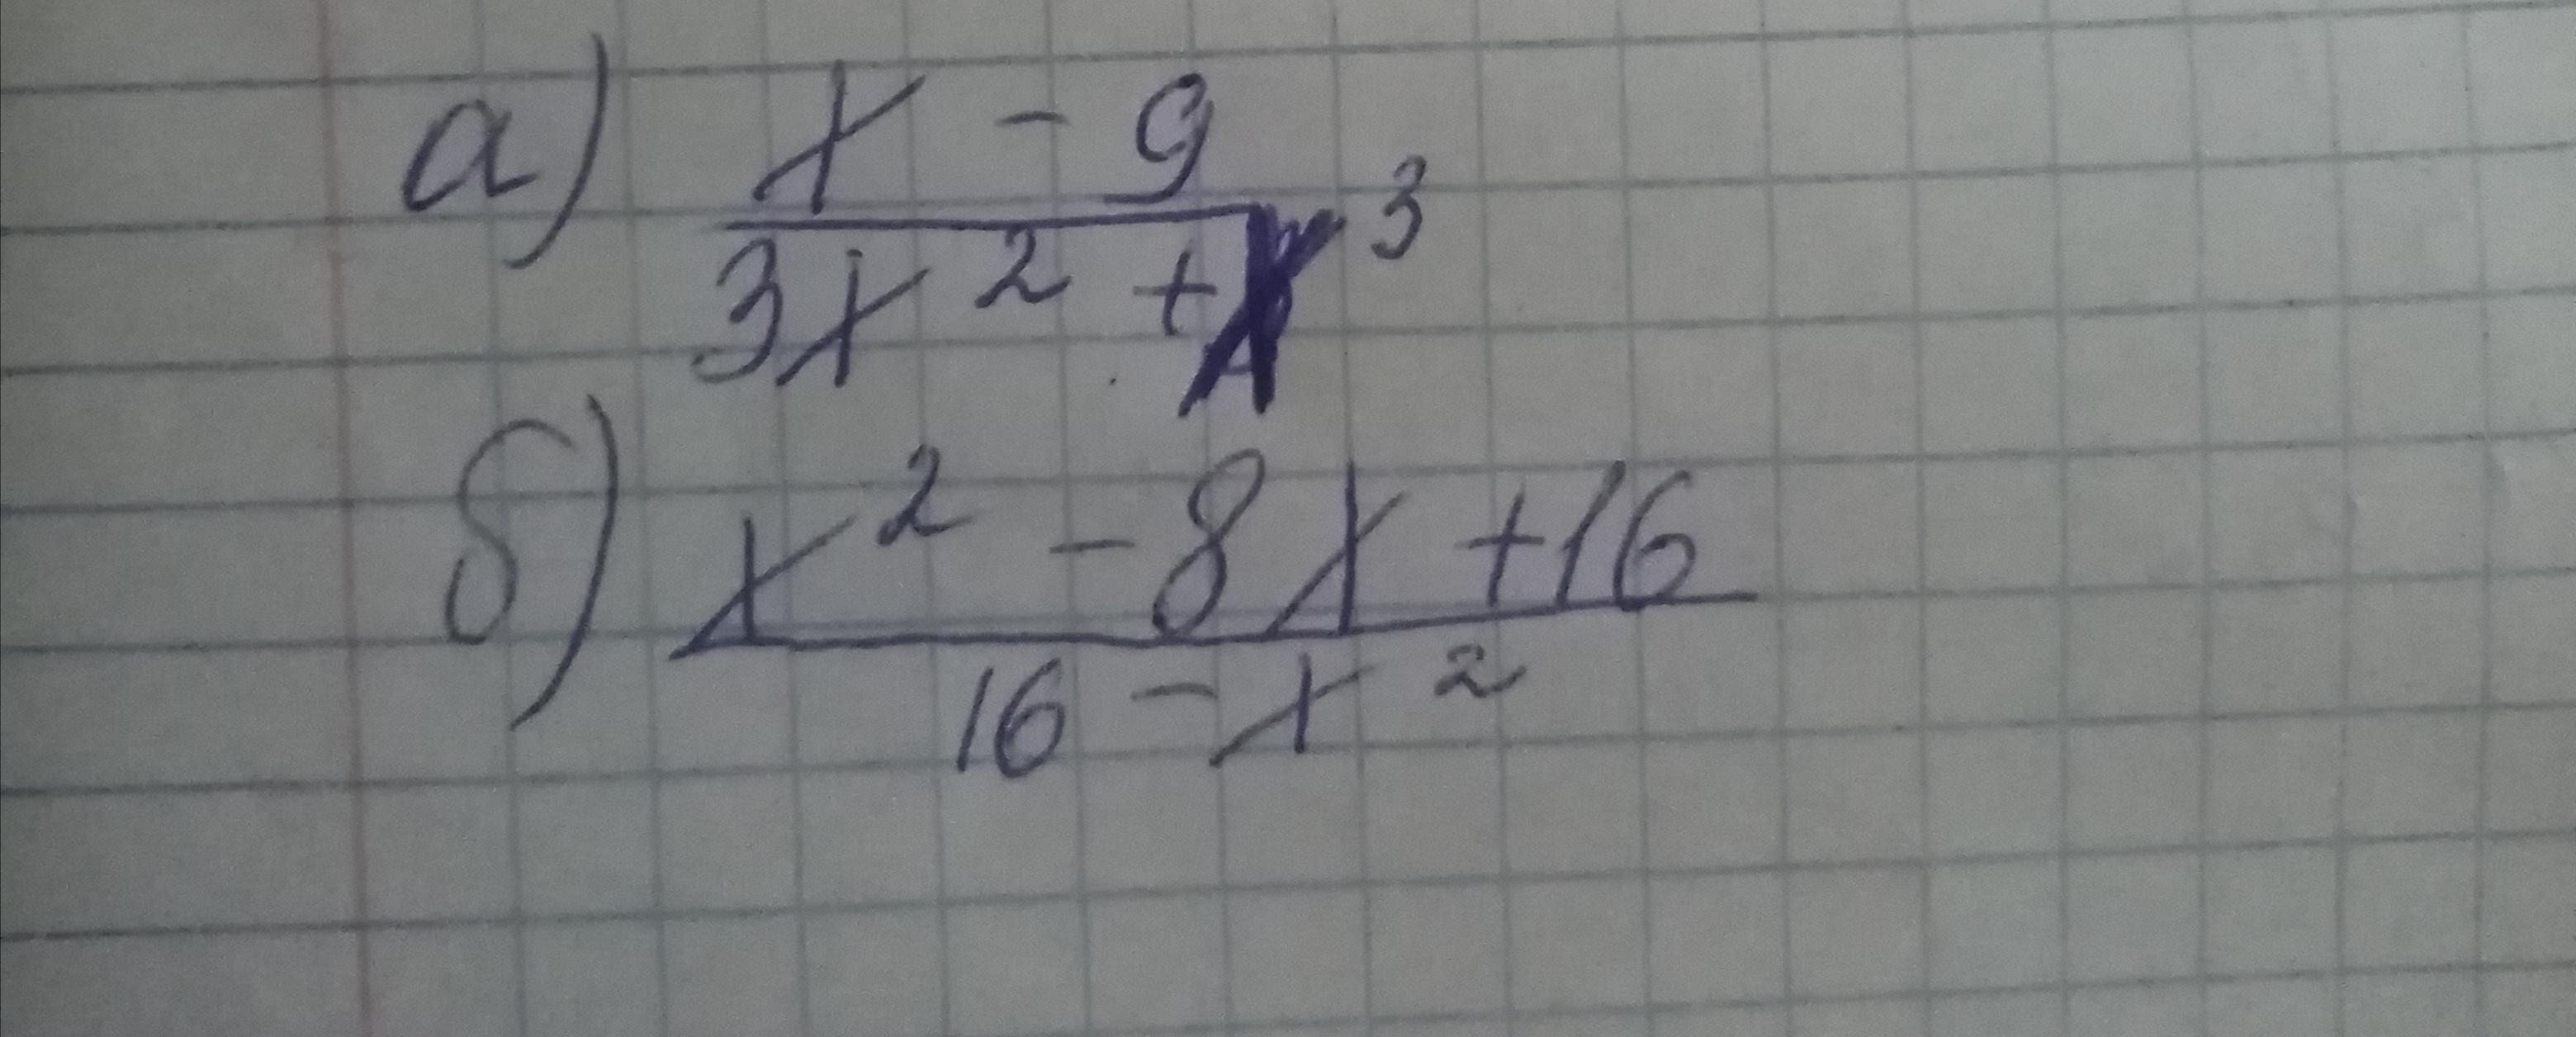 а) x - 9
3x² + x³
б) x² - 8x + 16
16 - x²